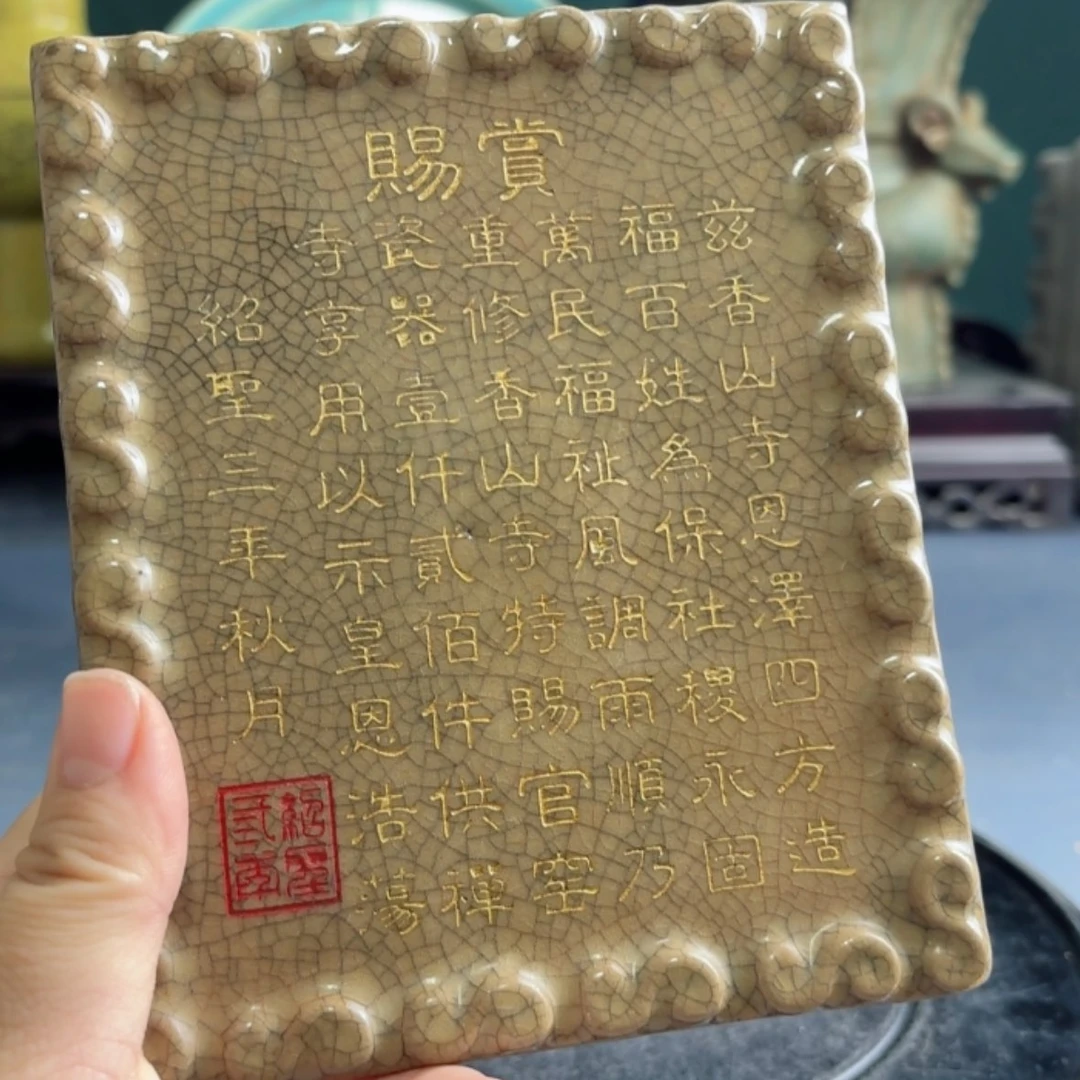 賞賜
茲香山寺恩澤四方造
福百姓爲保社稷永固
萬民福祉風調雨順乃
重修香山寺特賜官窑
瓷器壹仟貳佰件供禪
寺享用以示皇恩浩蕩
紹聖三年秋月
紹聖